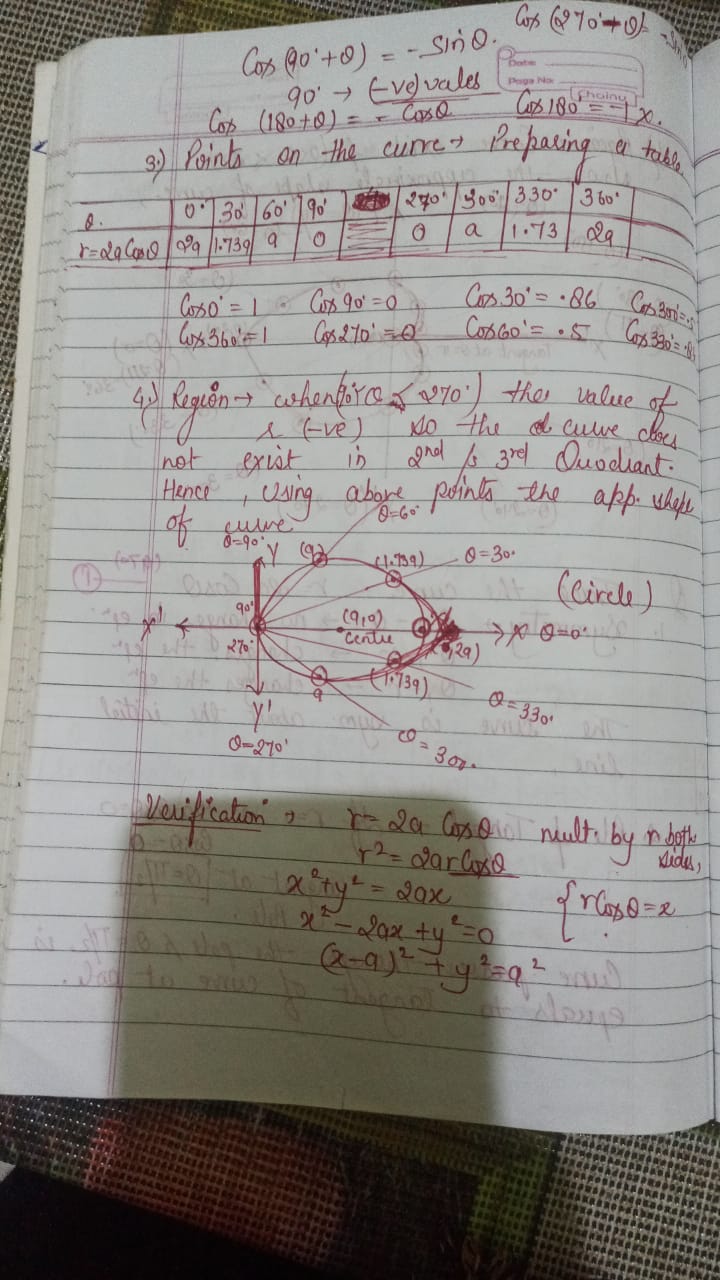 Cos (270°+θ)= -Sinθ
Cos(90°+θ) = -Sinθ.
90° → (-ve) vales
Date
Page No.
Cos (180+θ) = - Cosθ Cos180° = -1 x.
3.) Points on the curve → Preparing a table
θ. 0° 30° 60° 90° 270° 300° 330° 360°
r=2aCosθ 2a 1.73a a 0 0 a 1.73 2a
Cos0° = 1 Cos90° = 0 Cos30° = .86 Cos300°=.5
Cos360°=1 Cos270° = 0 Cos60° = .5 Cos330°=.86
4.) Region → when(90°<θ<270°) the value of
r (-ve) so the curve does
not exist in 2nd & 3rd Quadrant.
Hence, using above points the app. shape
of curve
θ=60°
θ=90° Y (a) (1.73a) θ=30°
(Circle)
90° (a,0)
X' centre X θ=0°
270° 2a)
a (1.73a)
Y' θ=330°
θ=270° θ = 300°
Verification → r= 2a Cosθ mult. by r both
sides,
r² = 2arCosθ
x²+y² = 2ax { rCosθ = x
x² - 2ax + y² = 0
(x-a)² + y² = a²